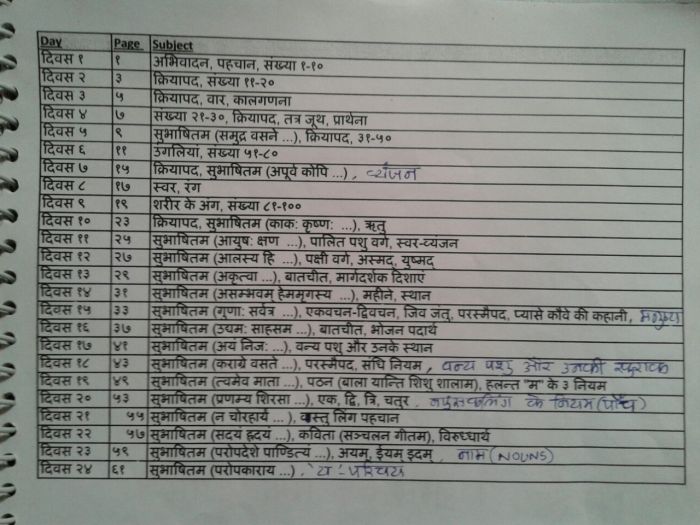 Day Page Subject
दिवस १ १ अभिवादन, पहचान, संख्या १-१०
दिवस २ ३ क्रियापद, संख्या ११-२०
दिवस ३ ५ क्रियापद, वार, कालगणना
दिवस ४ ७ संख्या २१-३०, क्रियापद, तत्र जूथ, प्रार्थना
दिवस ५ ९ सुभाषितम (समुद्र वसने ...), क्रियापद, ३१-५०
दिवस ६ ११ उंगलियां, संख्या ५१-८०
दिवस ७ १५ क्रियापद, सुभाषितम (अपूर्व कोपि ...), व्यंजन
दिवस ८ १७ स्वर, रंग
दिवस ९ १९ शरीर के अंग, संख्या ८१-१००
दिवस १० २३ क्रियापद, सुभाषितम (काक: कृष्ण: ...), ऋतु
दिवस ११ २५ सुभाषितम (आयुष: क्षण ...), पालित पशु वर्ग, स्वर-व्यंजन
दिवस १२ २७ सुभाषितम (आलस्य हि ...), पक्षी वर्ग, अस्मद, युष्मद्
दिवस १३ २९ सुभाषितम (अकृत्वा ...), बातचीत, मार्गदर्शक दिशाएं
दिवस १४ ३१ सुभाषितम (असम्भवम् हेममृगस्य ...), महीने, स्थान
दिवस १५ ३३ सुभाषितम (गुणा: सर्वत्र ...), एकवचन-द्विवचन, जिव जंतु, परस्मैपद, प्यासे कौवे की कहानी,
दिवस १६ ३७ सुभाषितम (उद्यम: साहसम ...), बातचीत, भोजन पदार्थ
दिवस १७ ४१ सुभाषितम (अयं निज: ...), वन्य पशु और उनके स्थान
दिवस १८ ४३ सुभाषितम (कराग्रे वसते ...), परस्मैपद, संधि नियम, वन्य पशु और उनकी खुराक
दिवस १९ ४९ सुभाषितम (त्वमेव माता ...), पठन (बाला यान्ति शिशु शालाम), हलन्त "म" के ३ नियम
दिवस २० ५३ सुभाषितम (प्रणम्य शिरसा ...), एक, द्वि, त्रि, चतुर, नपुसकलिंग के नियम (पाँच)
दिवस २१ ५५ सुभाषितम (न चोरहार्य ...), वास्तु लिंग पहचान
दिवस २२ ५७ सुभाषितम (सदयं ह्रदयं ...), कविता (सञ्चलन गीतम), विरुध्धार्थ
दिवस २३ ५९ सुभाषितम (परोपदेशे पाण्डित्य ...), अयम्, ईयम् इदम्, नाम (NOUNS)
दिवस २४ ६१ सुभाषितम (परोपकाराय ...), परिचय